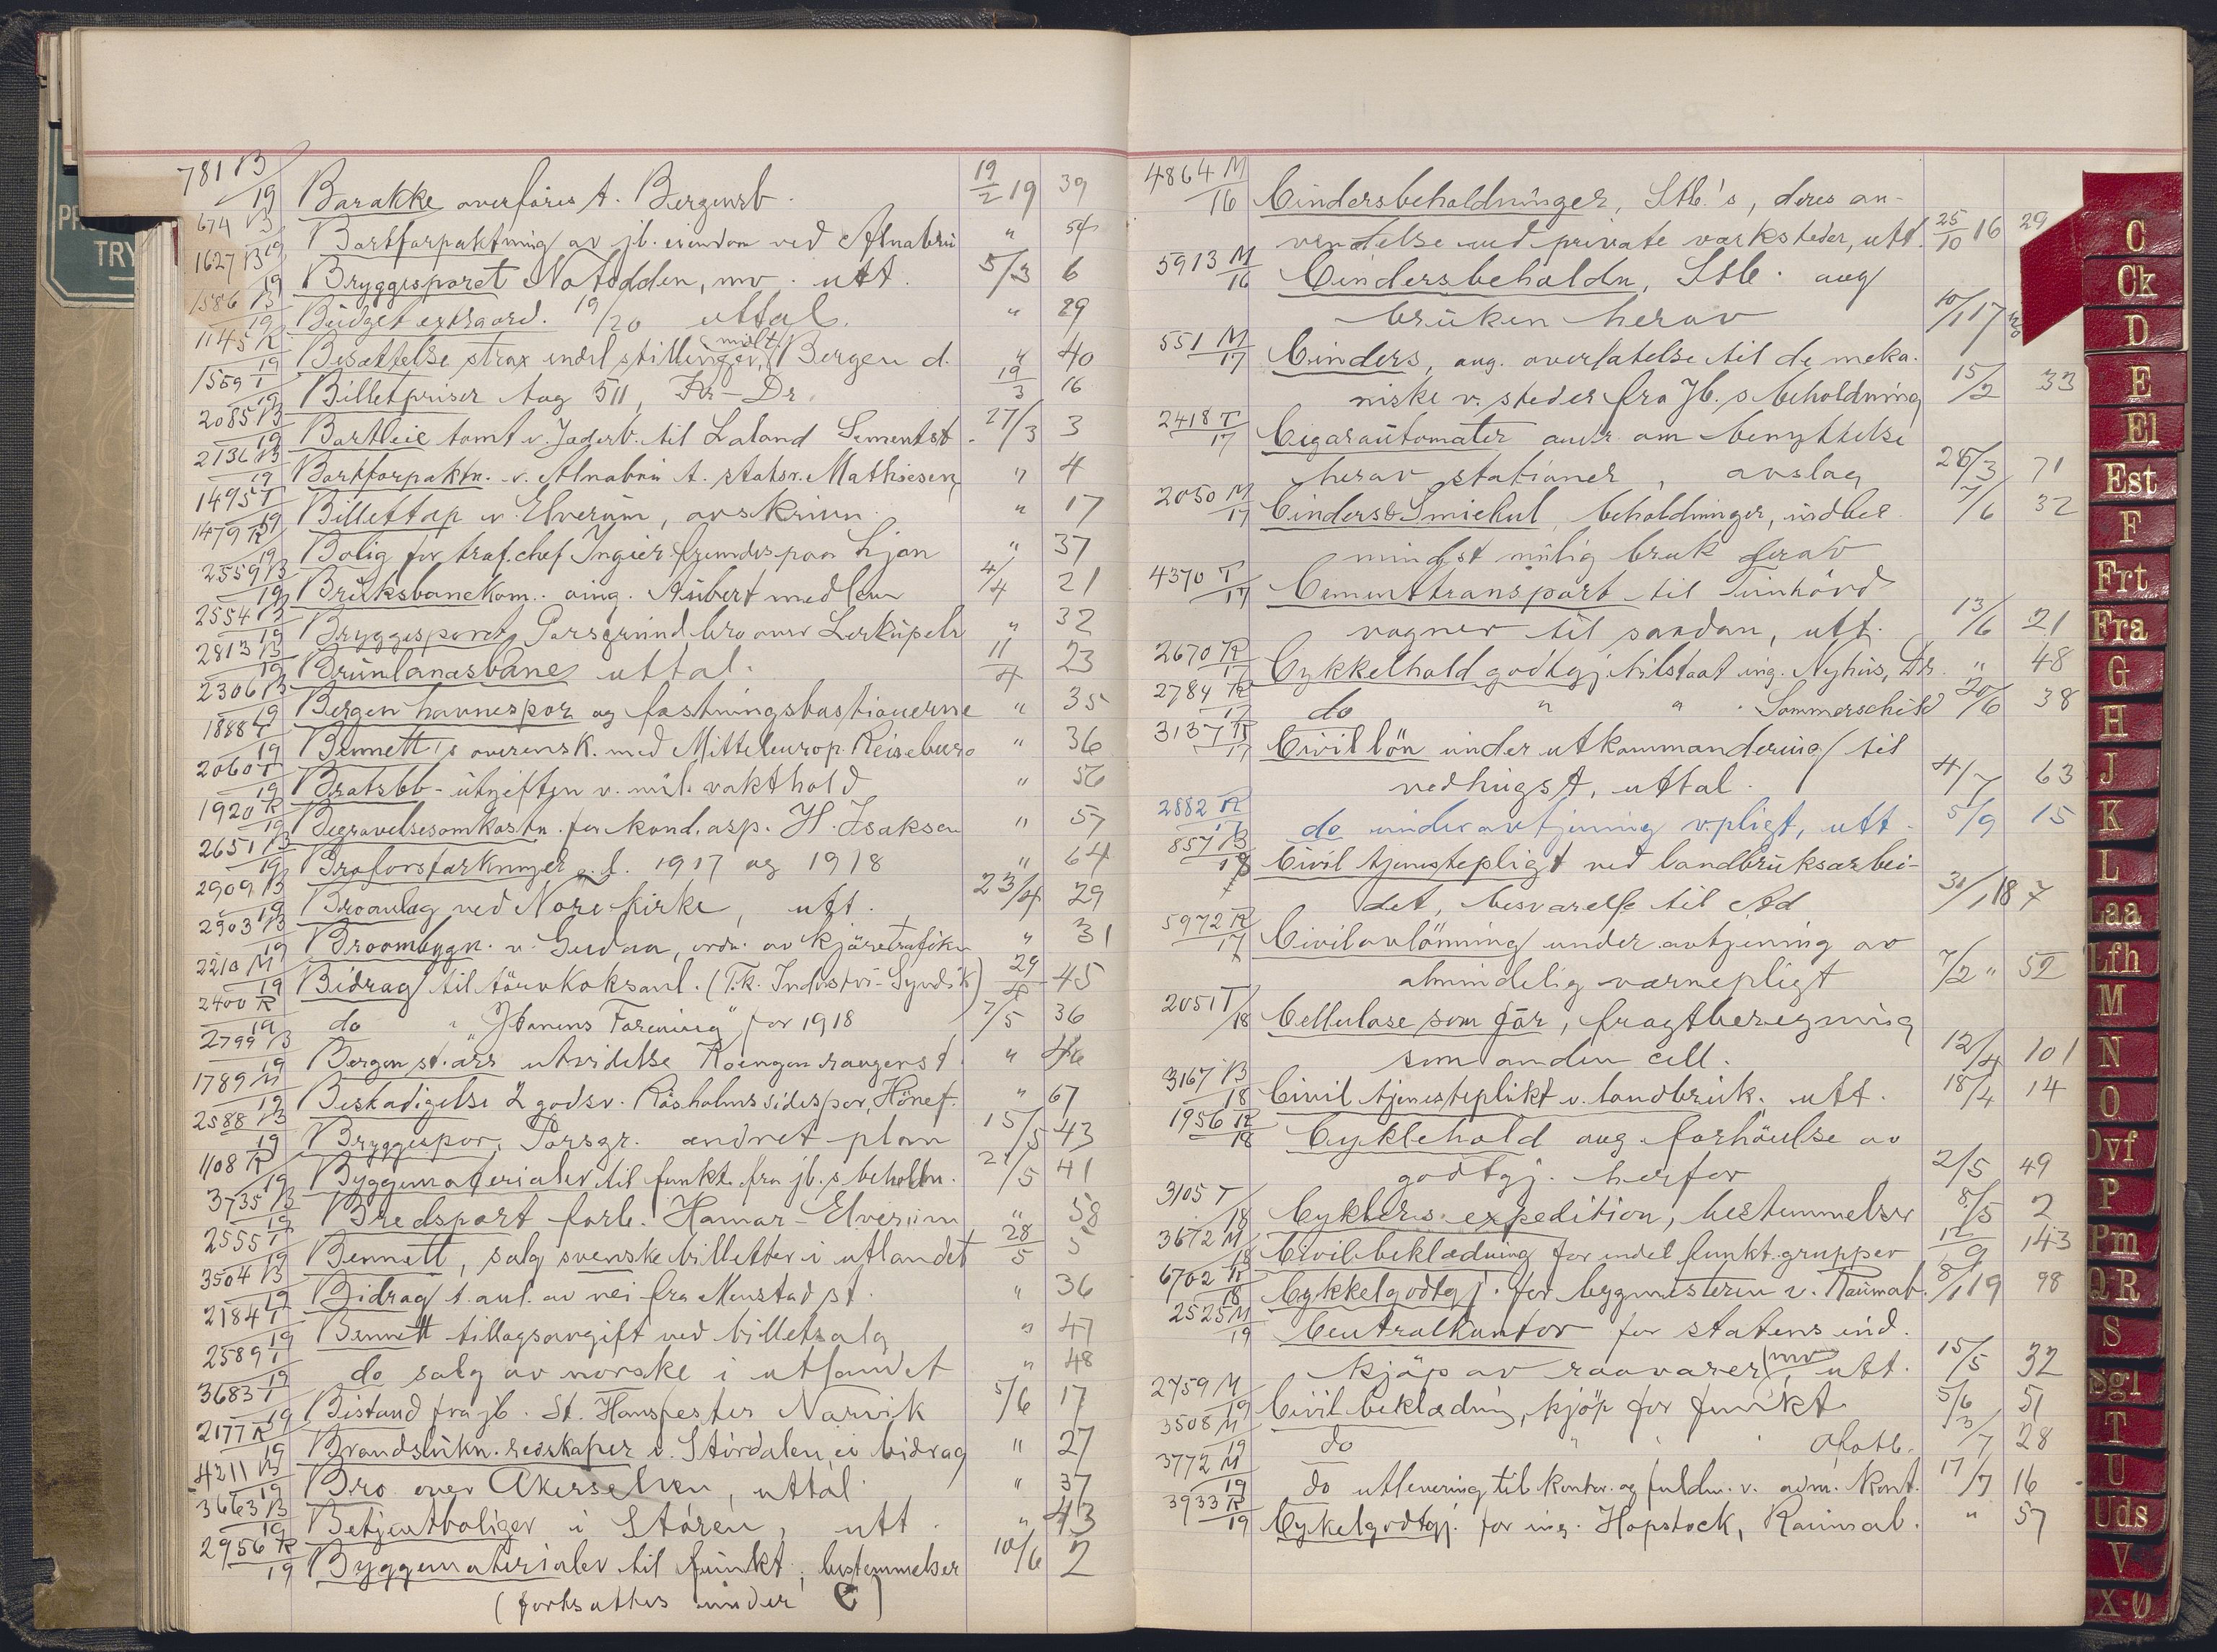 781 B/19 Barakke overføres t. Bergensb. 19/2 19 39
674 B/19 Bortforpaktning av jb. eiendom ved Alnabru " 54
1627 B/19 Bryggesporet Notodden, mv. utt. 5/3 6
1586 B/19 Budget extraord. 19/20 uttal. " 29
1145 R/19 Besættelse strax endel stillinger, (midlt.) Bergen d. " 40
1559 T/19 Billetpriser Aug 511, Kr-Dr. 19/3 16
2085 B/19 Bortleie tomt v. Jaderb. til Laland Sementst. 27/3 3
2136 B/19 Bortforpaktn. v. Alnabru t. statsr. Mathiesen, " 4
1495 T/19 Billettap v. Elverum, avskrivn. " 17
1479 R/19 Bolig for traf.chef Ingier fremdes paa Ljan " 37
2559 B/19 Bruksbanekom. aing. Aubert medlem 4/4 21
2554 B/19 Bryggesporet Porsgrund bro over Lerkupelv " 32
2813 B/19 Brunlanæsbanen uttal. 11/4 23
2306 B/19 Bergen havnespor og fæstningsbastionerne " 35
1888 T/19 Bennett's overensk. med Mitteleurop. Reisebureo " 36
2060 T/19 Bratsbb-utgiften v. mil. vakthold " 56
1920 R/19 Begravelsesomkostn. for kond.asp. H. Isaksen " 57
2651 B/19 Broforstærkninger p.f. 1917 og 1918 " 64
2909 B/19 Broanlæg ved Nore kirke, utt. 23/4 29
2903 B/19 Broombygn. v. Gudaa, ordn. av kjøretrafikn " 31
2210 M/19 Bidrag til törvkoksanl. (T.k. Industri-Syndik) 29/4 45
2400 R/19 do " "Jbanens Forening" for 1918 7/5 36
2799 B/19 Bergen st. ars utvidelse Koengen rangerst. " 46
1789 M/19 Beskadigelse 2 godsv. Råsholms sidespor, Hönef. " 67
2588 B/19 Bryggespor, Porsgr. ændret plan 15/5 43
1108 R/19 Byggematerialer til funkt. fra jb.s beholdn. 21/5 41
3735 B/19 Bredsport forb. Hamar-Elverum " 58
2555 T/19 Bennett, salg svenske billetter i utlandet 28/5 5
3504 B/19 Bidrag t. anl. av vei fra Menstad st. " 36
2184 T/19 Bennett tillægsavgift ved billetsalg " 47
2589 T/19 do salg av norske i utlandet " 48
3683 T/19 Bistand fra jb. St. Hansfesten Narvik 5/6 17
2177 R/19 Brandslukn. redskaper v. Stördalen, ei bidrag " 27
4211 B/19 Bro over Akerselven, uttal. " 37
3663 B/19 Betjentboliger i Stören, utt. " 43
2956 R/19 Byggematerialer til funkt, bestemmelser 10/6 2
(fortsættes under C)
4864 M/16 Cindersbeholdninger, Stb.'s, deres an-
vendelse ved private værksteder, utt. 25/10 16 29
5913 M/16 Cindersbeholdn, Stb. ang
bruken herav 10/1 17
551 M/17 Cinders, ang. overlatelse til de meka-
niske v. steder fra Jb.s beholdning 15/2 33
2418 T/17 Cigarautomater andr. om benyttelse
herav stationer, avslag 26/3 71
2050 M/17 Cinders & Smiekul beholdninger, indber.
mindst mulig bruk herav 7/6 32
4370 T/17 Cementtransport til Tinhövd
vogner til saadan, utt. 13/6 21
2670 R/17 Cykkelhold godtgj. tilstaat ing. Nyhus, Dr. " 48
2784 R/17 do " " " Sommerschild 20/6 38
3137 R/17 Civillön under utkommandering til
vedhugst, uttal. 4/7 63
2882 R/17 do under avtjening v.pligt, utt. 5/9 15
857 B/18 Civil tjenestepligt ved landbruksarbei-
det, besvarelse til Ad 31/1 18 7
5972 R/17 Civilavlönning under avtjening av
almindelig værnepligt 7/2 " 52
2051 T/18 Cellulose som för, fragtberegning
som anden cell. 12/4 101
3167 B/18 Civil tjenesteplikt v. landbruk. utt. 18/4 14
1956 R/18 Cyklehold ang. forhöielse av
godtgj. herfor 2/5 49
3105 T/18 Cyklers expedition, bestemmelser 8/5 2
3672 M/18 Civilbeklædning for endel funkt.grupper 12/9 143
6702 R/18 Cykkelgodtgj. for bygmesteren v. Raumab. 8/1 19 98
2525 M/19 Centralkontor for statens ind.
kjöp av raavarer (mv), utt. 15/5 32
2759 M/19 Civil beklædning, kjöp for funkt. 5/6 51
3508 M/19 do " " " Ofotb. 3/7 28
3772 M/19 do utlevering til kontor. og fuldm. v. adm. kont. 17/7 16
3933 R/19 Cykelgodtgj. for ing. Hopstock, Raumab. " 57
C
Ck
D
E
El
Est
F
Frt
Fra
G
H
J
K
L
Laa
Lfh
M
N
O
Ovf
P
Pm
QR
S
Sgl
T
U
Uds
V
X-Ø
TRY